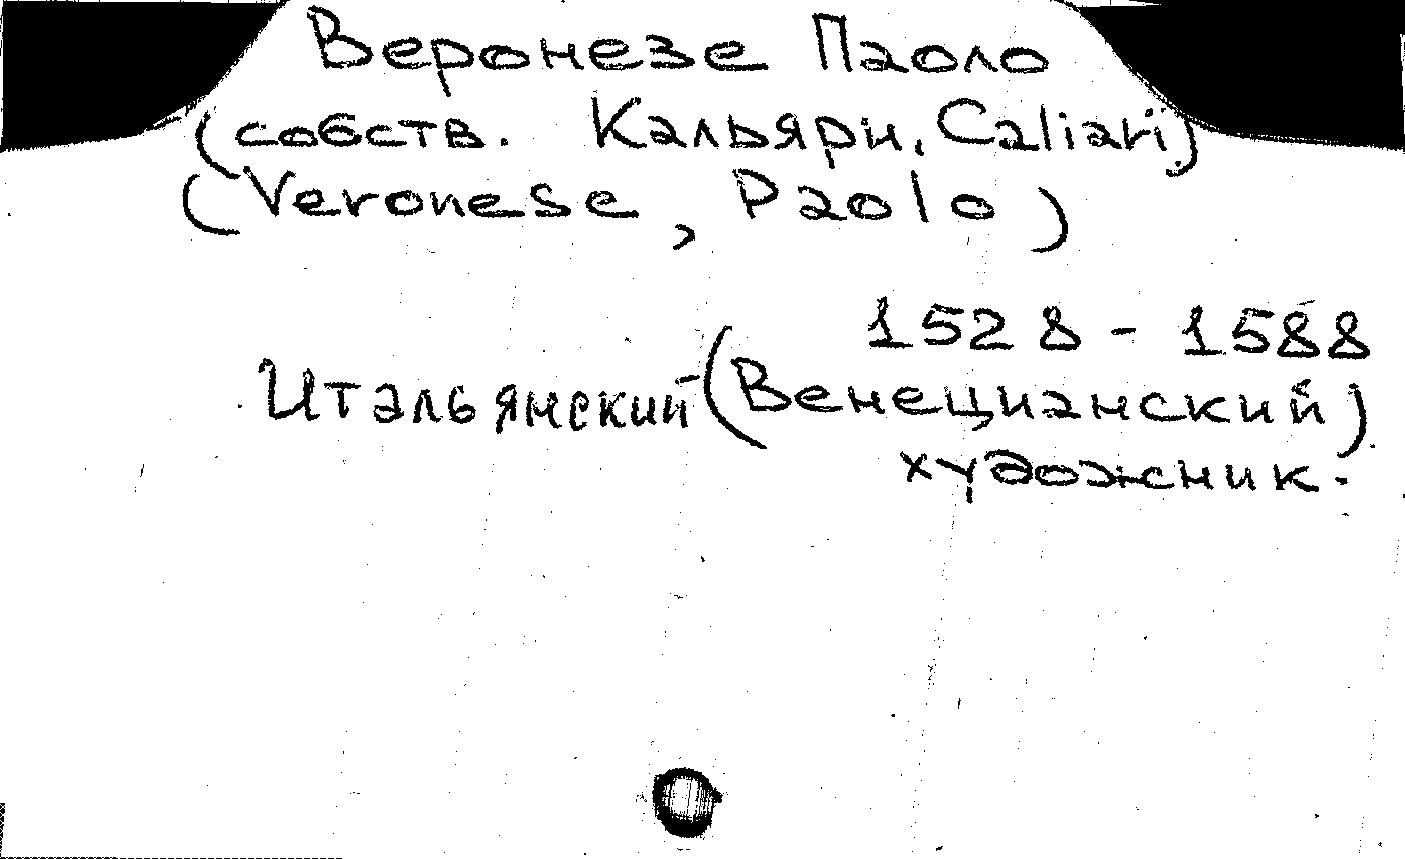 Веронезе Паоло
(собств. Кальяри, Caliari)
(Veronese, Paolo)
1528 - 1588
Итальянский (Венецианский)
художник.